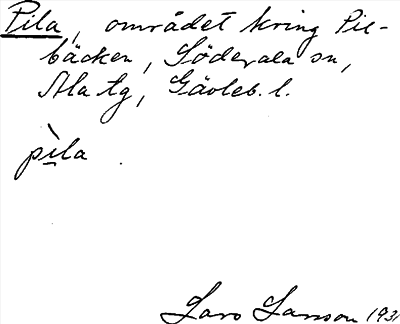 Pila, området kring Pil-
bäcken, Söderala sn,
Ala tg, Gävleb. l.
pìla.
Lars Larsson 1931